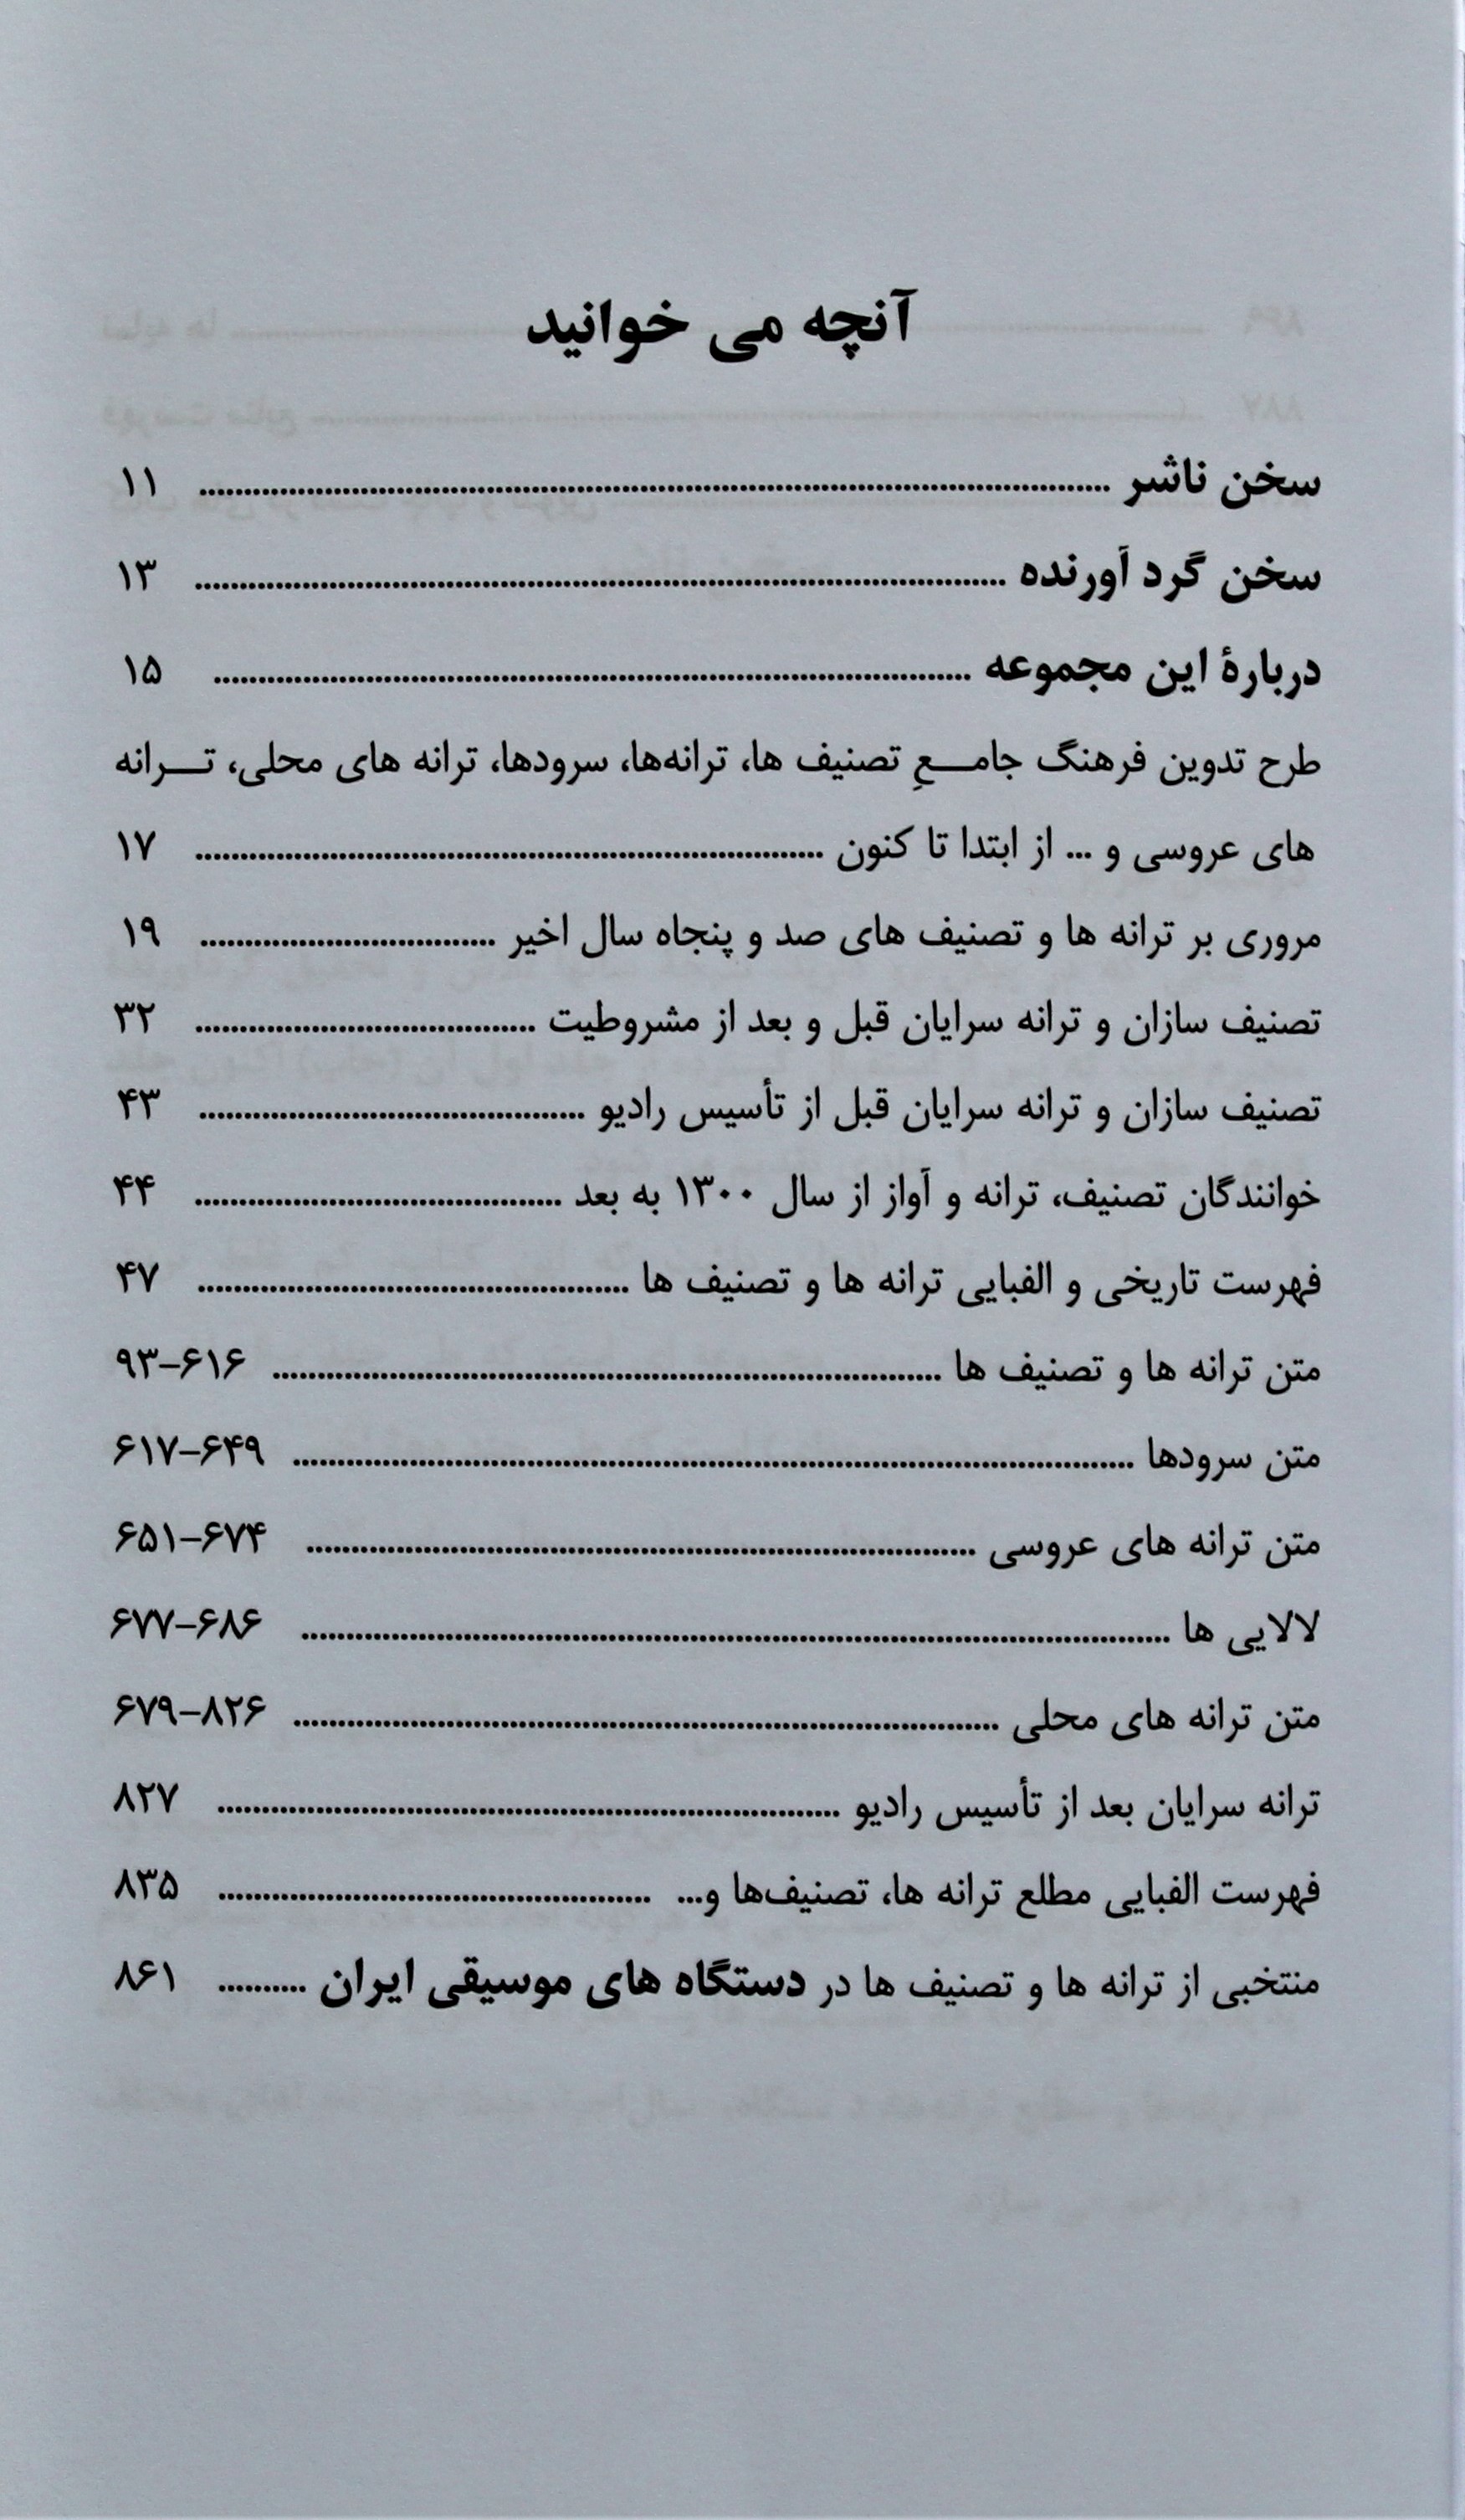 آنچه می خوانید
سخن ناشر ........................................ ۱۱
سخن گرد آورنده ........................................ ۱۳
دربارهٔ این مجموعه ........................................ ۱۵
طرح تدوین فرهنگ جامـــعِ تصنیف ها، ترانه‌ها، سرودها، ترانه های محلی، تـــرانه
های عروسی و ... از ابتدا تا کنون ........................................ ۱۷
مروری بر ترانه ها و تصنیف های صد و پنجاه سال اخیر ........................................ ۱۹
تصنیف سازان و ترانه سرایان قبل و بعد از مشروطیت ........................................ ۳۲
تصنیف سازان و ترانه سرایان قبل از تأسیس رادیو ........................................ ۴۳
خوانندگان تصنیف، ترانه و آواز از سال ۱۳۰۰ به بعد ........................................ ۴۴
فهرست تاریخی و الفبایی ترانه ها و تصنیف ها ........................................ ۴۷
متن ترانه ها و تصنیف ها ........................................ ۹۳–۶۱۶
متن سرودها ........................................ ۶۱۷–۶۴۹
متن ترانه های عروسی ........................................ ۶۵۱–۶۷۴
لالایی ها ........................................ ۶۷۷–۶۸۶
متن ترانه های محلی ........................................ ۶۷۹–۸۲۶
ترانه سرایان بعد از تأسیس رادیو ........................................ ۸۲۷
فهرست الفبایی مطلع ترانه ها، تصنیف‌ها و... ........................................ ۸۳۵
منتخبی از ترانه ها و تصنیف ها در دستگاه های موسیقی ایران .......... ۸۶۱